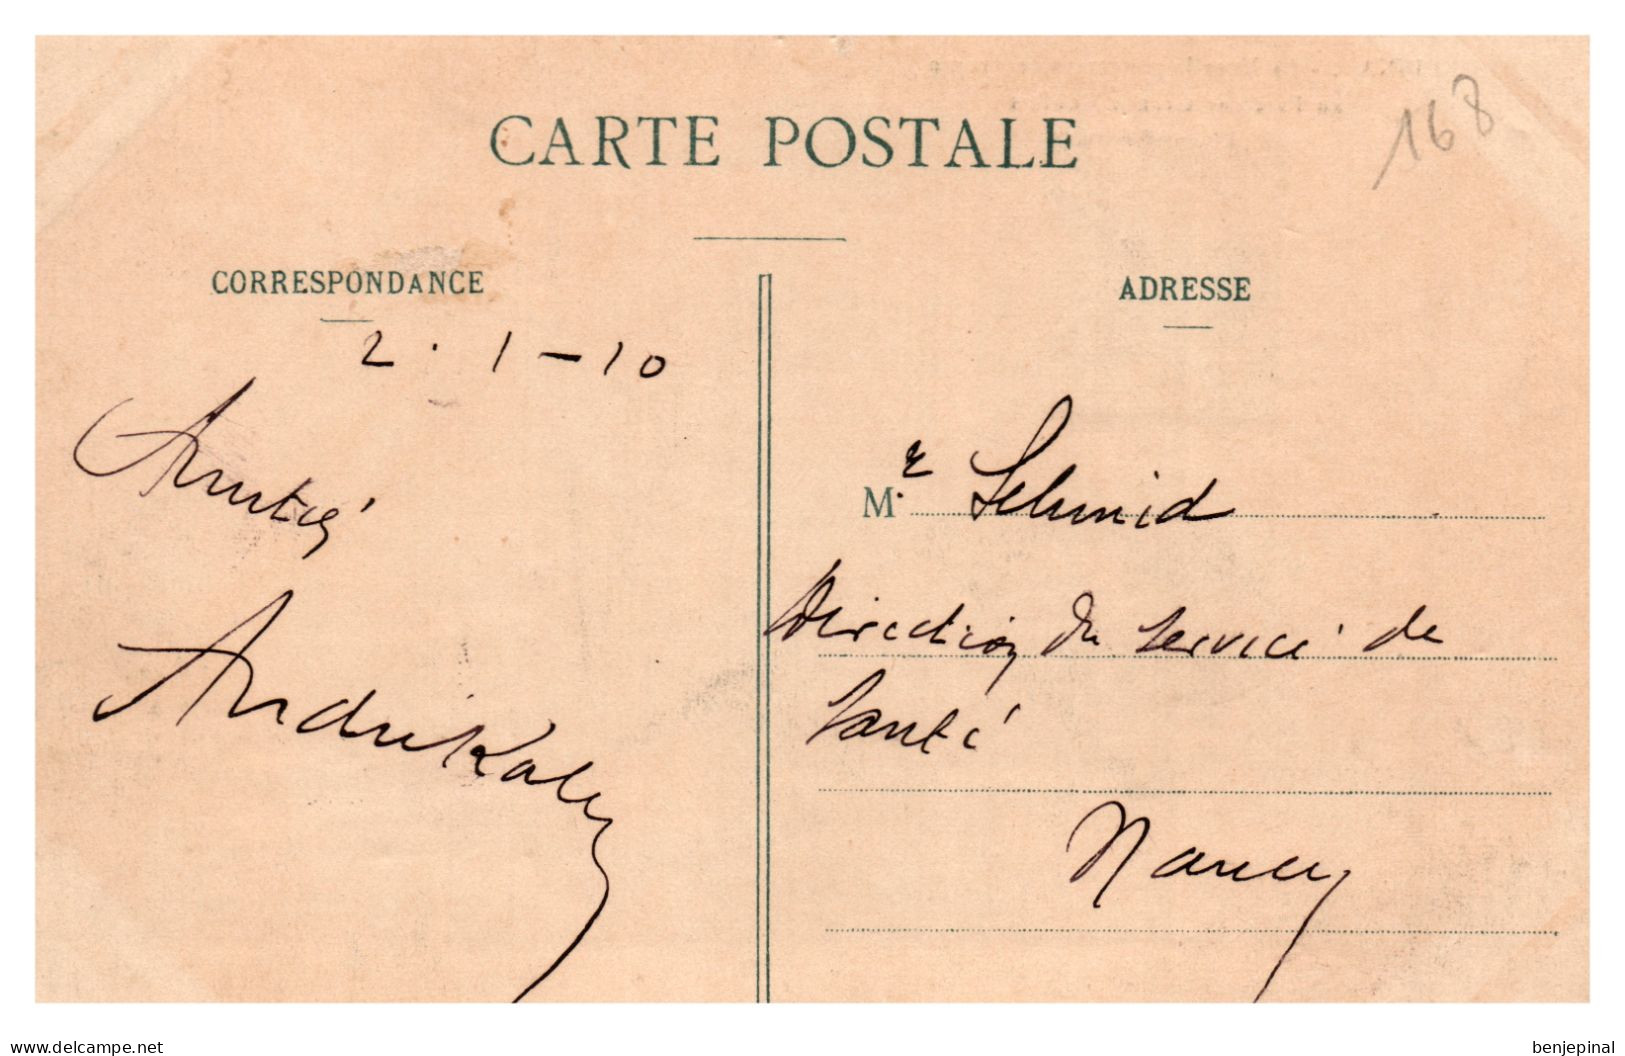 168
CARTE POSTALE
CORRESPONDANCE
2.1-10
Amitié
ADRESSE
Mr Schmid
Direction du service de
Santé
Nancy
www.delcampe.net
benjepinal